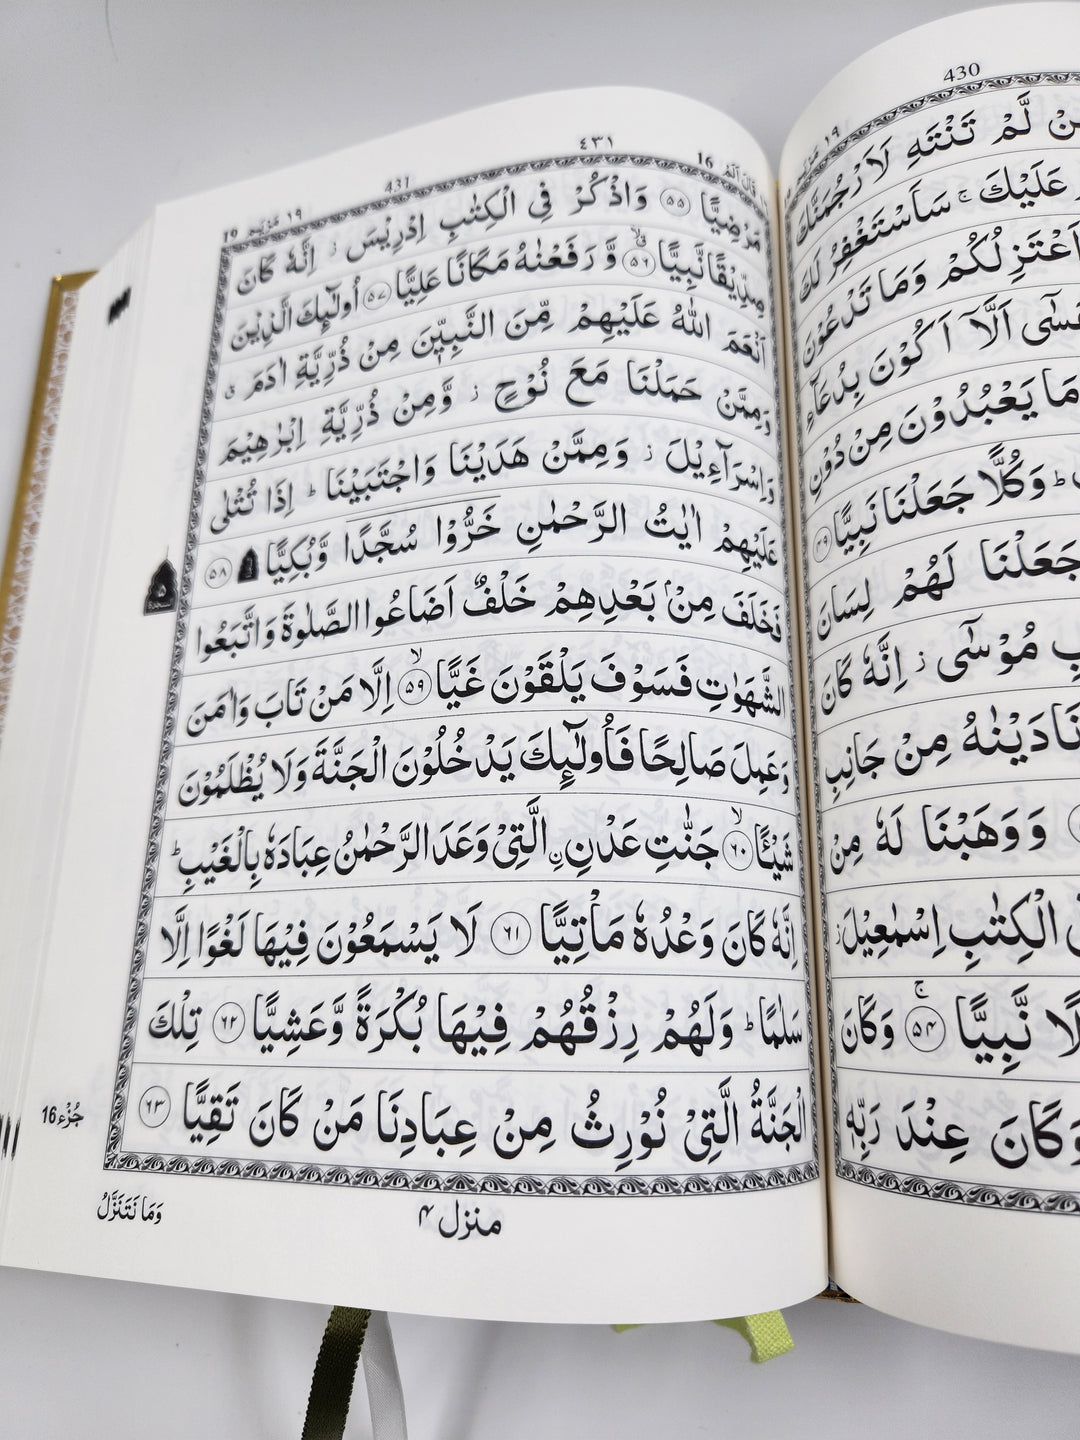 430
مَرْيَم ١٩
لَّمْ تَنْتَهِ لَاَرْجُمَنَّكَ
عَلَيْكَ ۚ سَاَسْتَغْفِرُ لَكَ
اَعْتَزِلُكُمْ وَمَا تَدْعُوْنَ
اَلَّاۤ اَكُوْنَ بِدُعَآءِ
مَا يَعْبُدُوْنَ مِنْ دُوْنِ
ؕ وَكُلًّا جَعَلْنَا نَبِيًّا ﴿۴۹﴾
جَعَلْنَا لَهُمْ لِسَانَ
مُوْسٰۤى ۫ اِنَّهٗ كَانَ
نَادَيْنٰهُ مِنْ جَانِبِ
وَوَهَبْنَا لَهٗ مِنْ
الْكِتٰبِ اِسْمٰعِيْلَ ۫
نَّبِيًّا ﴿ۚ۵۴﴾ وَكَانَ
وَكَانَ عِنْدَ رَبِّهٖ
٤٣١
431
قَالَ اَلَمْ 16
مَرْيَم ١٩ 19
مَرْضِيًّا ﴿۵۵﴾ وَاذْكُرْ فِى الْكِتٰبِ اِدْرِيْسَ ۫ اِنَّهٗ كَانَ
صِدِّيْقًا نَّبِيًّا ﴿ۙ۵۶﴾ وَّرَفَعْنٰهُ مَكَانًا عَلِيًّا ﴿۵۷﴾ اُولٰٓئِكَ الَّذِيْنَ
اَنْعَمَ اللّٰهُ عَلَيْهِمْ مِّنَ النَّبِيّٖنَ مِنْ ذُرِّيَّةِ اٰدَمَ ۗ
وَمِمَّنْ حَمَلْنَا مَعَ نُوْحٍ ۫ وَّمِنْ ذُرِّيَّةِ اِبْرٰهِيْمَ
وَاِسْرَآءِيْلَ ۫ وَمِمَّنْ هَدَيْنَا وَاجْتَبَيْنَا ؕ اِذَا تُتْلٰى
عَلَيْهِمْ اٰيٰتُ الرَّحْمٰنِ خَرُّوْا سُجَّدًا وَّبُكِيًّا ﴿۵۸﴾
فَخَلَفَ مِنْۢ بَعْدِهِمْ خَلْفٌ اَضَاعُوا الصَّلٰوةَ وَاتَّبَعُوا
الشَّهَوٰتِ فَسَوْفَ يَلْقَوْنَ غَيًّا ﴿ۙ۵۹﴾ اِلَّا مَنْ تَابَ وَاٰمَنَ
وَعَمِلَ صَالِحًا فَاُولٰٓئِكَ يَدْخُلُوْنَ الْجَنَّةَ وَلَا يُظْلَمُوْنَ
شَيْـًٔا ﴿ۙ۶۰﴾ جَنّٰتِ عَدْنِ ۨالَّتِىْ وَعَدَ الرَّحْمٰنُ عِبَادَهٗ بِالْغَيْبِ ؕ
اِنَّهٗ كَانَ وَعْدُهٗ مَاْتِيًّا ﴿۶۱﴾ لَا يَسْمَعُوْنَ فِيْهَا لَغْوًا اِلَّا
سَلٰمًا ؕ وَلَهُمْ رِزْقُهُمْ فِيْهَا بُكْرَةً وَّعَشِيًّا ﴿۶۲﴾ تِلْكَ
الْجَنَّةُ الَّتِىْ نُوْرِثُ مِنْ عِبَادِنَا مَنْ كَانَ تَقِيًّا ﴿۶۳﴾
جُزْء 16
منزل ۴
وَمَا نَتَنَزَّلُ